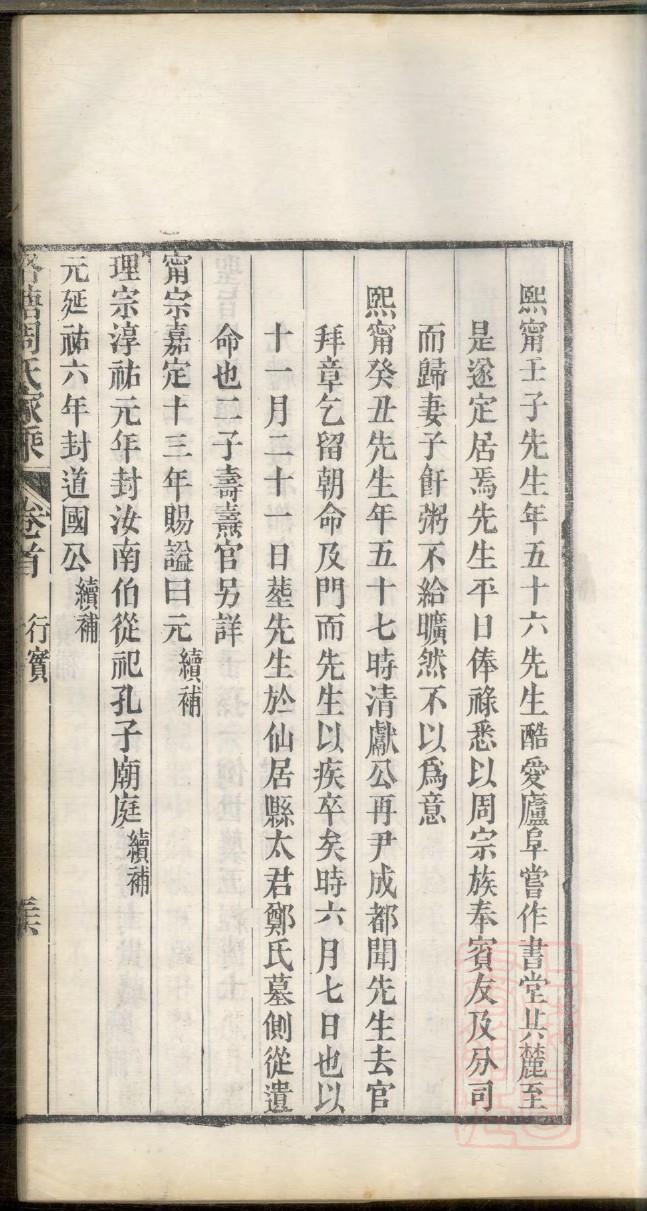 熙甯壬子先生年五十六先生酷愛廬阜嘗作書堂其麓至
是遂定居焉先生平日俸祿悉以周宗族奉賓友及分司
而歸妻子飦粥不給曠然不以爲意
熙甯癸丑先生年五十七時清獻公再尹成都聞先生去官
拜章乞留朝命及門而先生以疾卒矣時六月七日也以
十一月二十一日塟先生於仙居縣太君鄭氏墓側從遺
命也二子壽燾官另詳
甯宗嘉定十三年賜謚曰元續補
理宗淳祐元年封汝南伯從祀孔子廟庭續補
元延祐六年封道國公續補
周氏家乘 卷首 行實